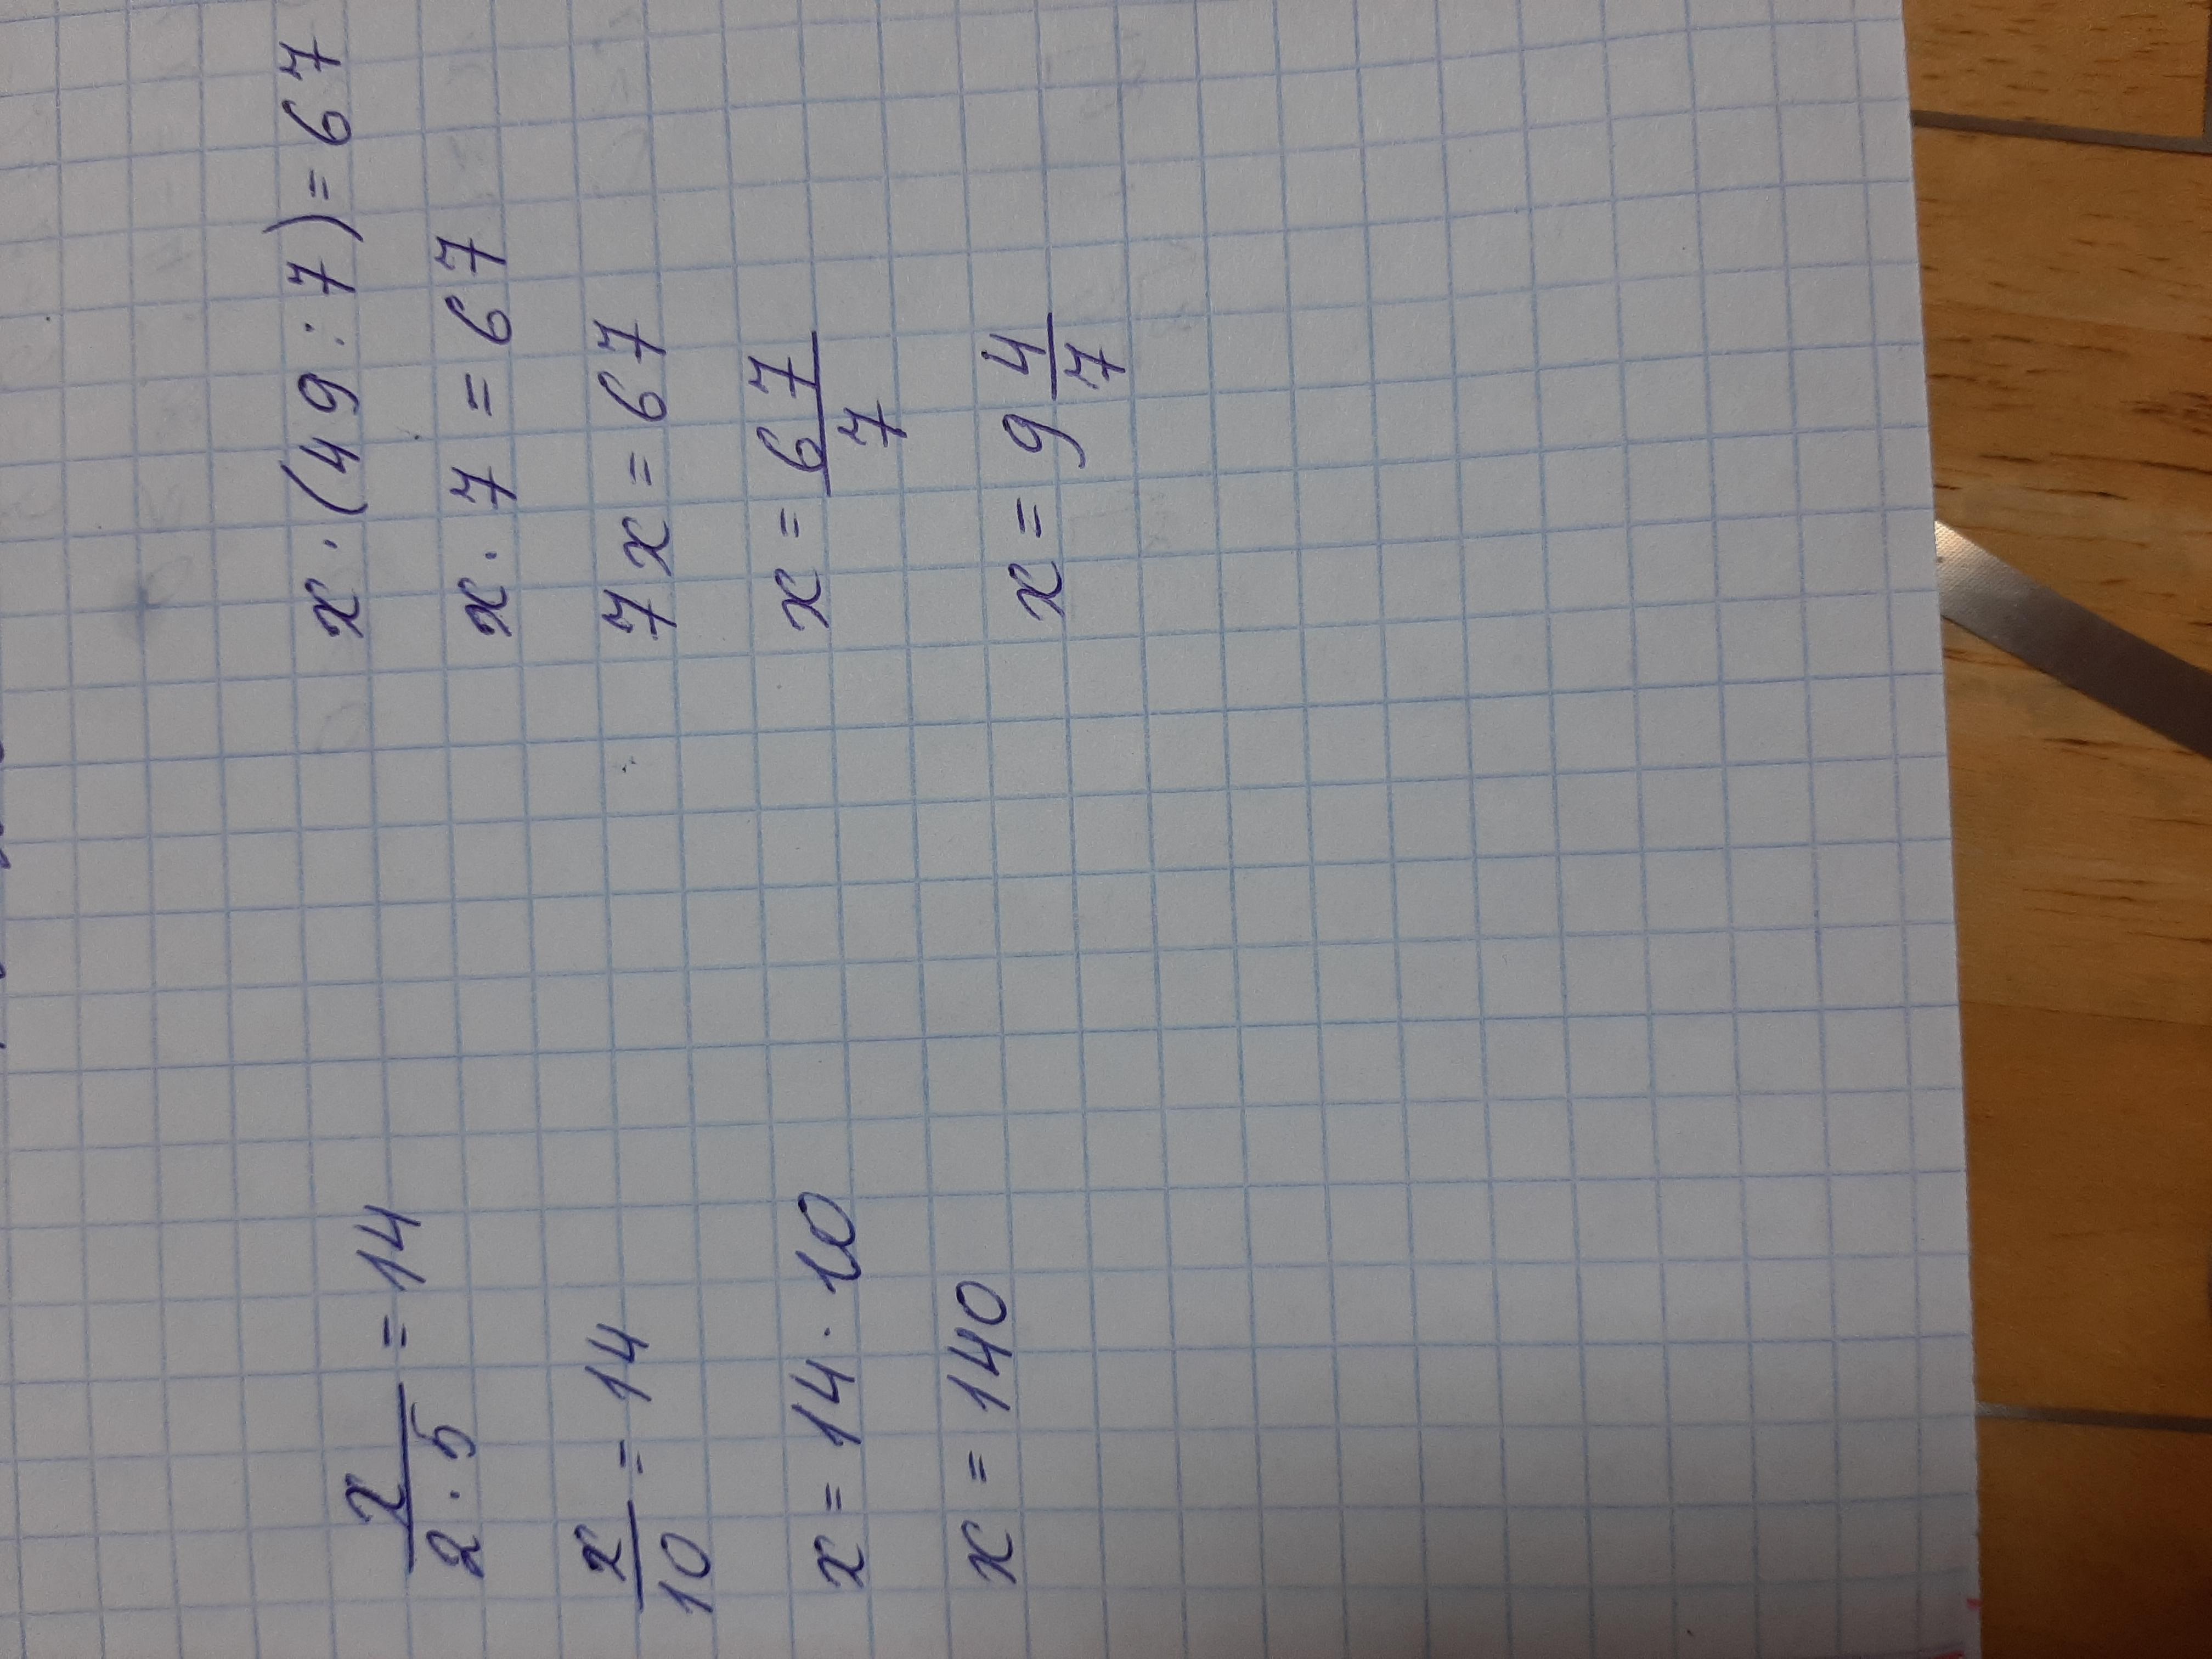 x/(2·5) = 14
x/10 = 14
x = 14·10
x = 140
x·(49:7) = 67
x·7 = 67
7x = 67
x = 67/7
x = 9 4/7